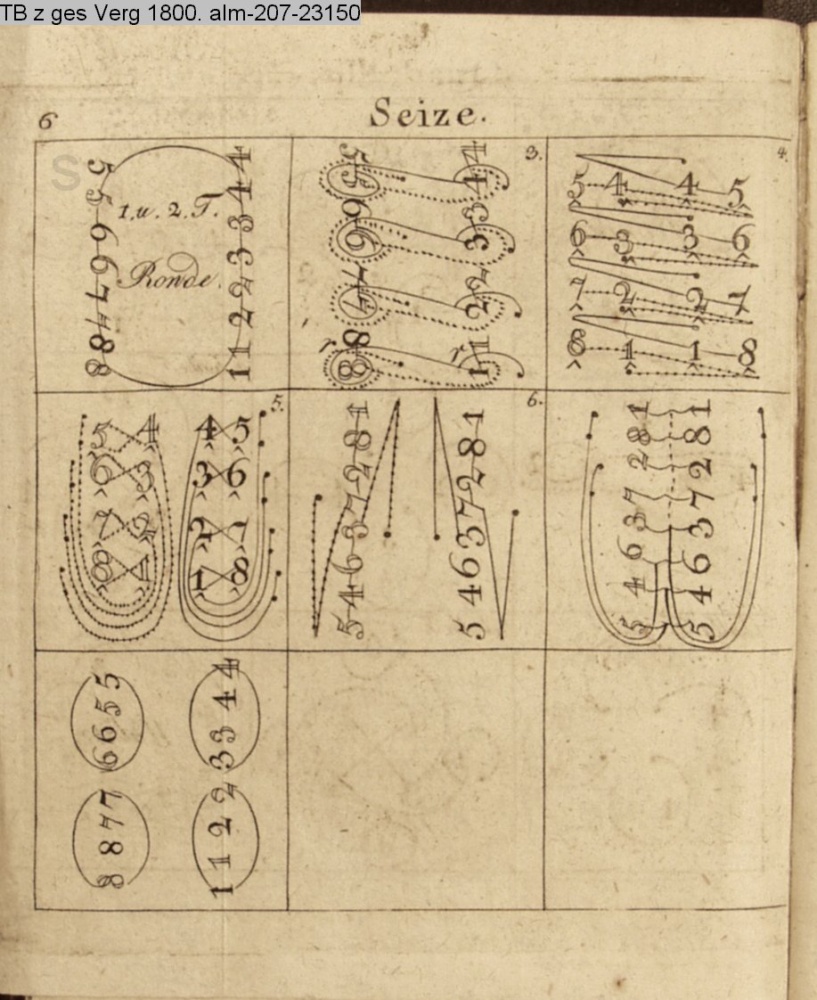 TB z ges Verg 1800. alm-207-23150
6
Seize.
S
1. u. 2. T.
Ronde.
5 5 6 6 7 7 8 8
4 4 3 3 2 2 1 1
3.
5 5 4 4
6 6 3 3
7 7 2 2
r 8 8 r 1 1
4.
5 4 4 5
6 3 3 6
7 2 2 7
8 1 1 8
5.
5 4 4 5
6 3 3 6
7 2 2 7
8 1 1 8
6.
5 4 6 3 7 2 8 1
5 4 6 3 7 2 8 1
5 4 6 3 7 2 8 1
5 4 6 3 7 2 8 1
6 6 5 5
3 3 4 4
8 8 7 7
1 1 2 2